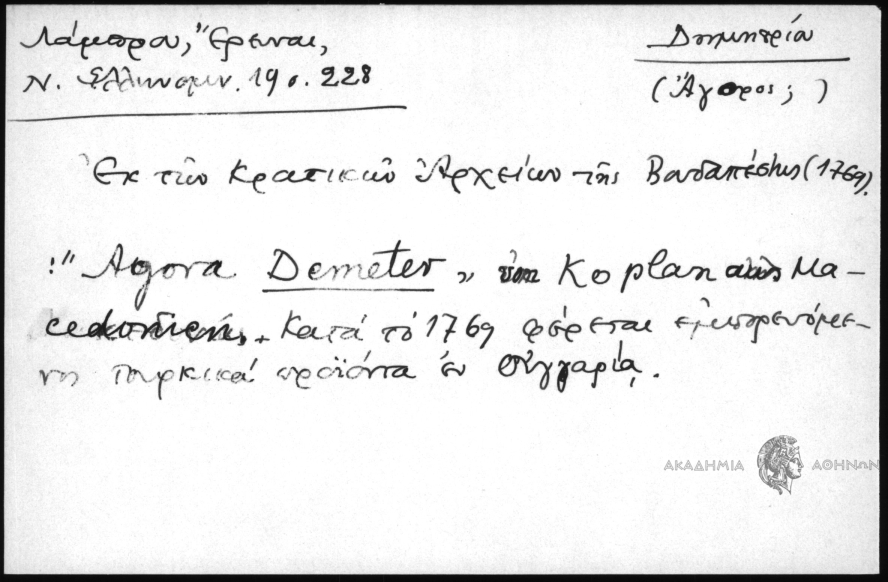 Λάμπρου, "Ερευναι,
Ν. Ελληνομν. 19 σ. 228
Δημητρίου
(Άγορος;)
Ἐκ τῶν Κρατικῶν Ἀρχείων τῆς Βουδαπέστης (1769).
"Agora Demeter, Koplan Ma-
cedonien, Κατά τό 1769 φέρεται ἐμπορευόμε-
νος τουρκικά προϊόντα ἐν Οὑγγαρίᾳ.
ΑΚΑΔΗΜΙΑ ΑΘΗΝΩΝ